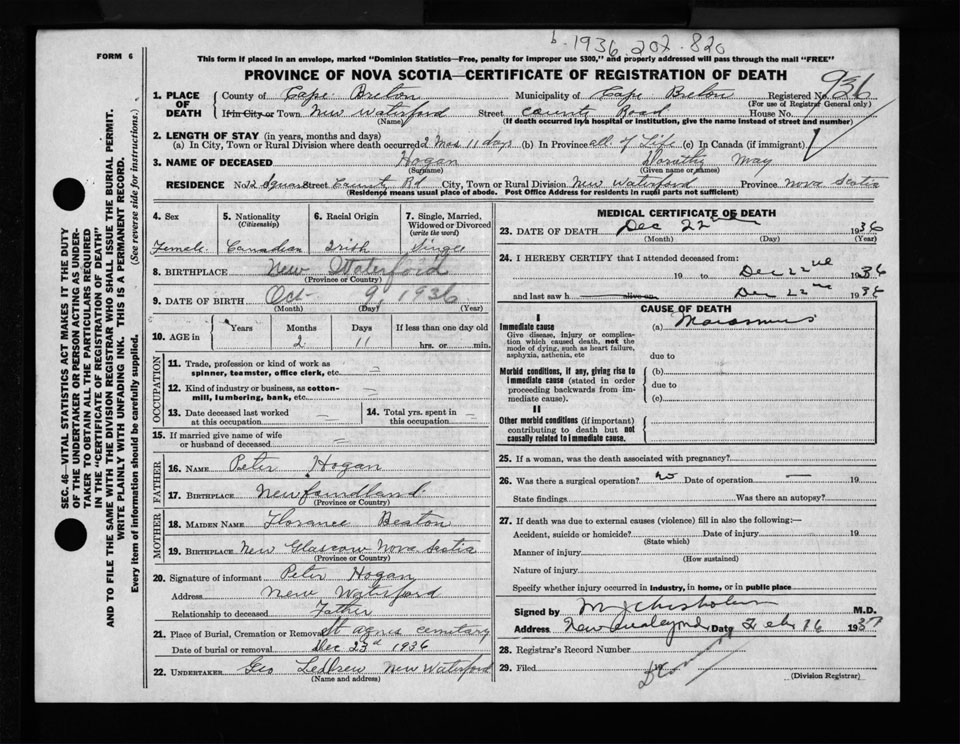 b. 1936. 207. 820
FORM 6
This form if placed in an envelope, marked "Dominion Statistics—Free, penalty for improper use $300," and properly addressed will pass through the mail "FREE"
PROVINCE OF NOVA SCOTIA—CERTIFICATE OF REGISTRATION OF DEATH
936
1. PLACE OF DEATH County of Cape Breton Municipality of Cape Breton Registered No.
(For use of Registrar General only)
If in City or Town New Waterford Street County Road House No.
(Name) (If death occurred in a hospital or institution, give the name instead of street and number)
2. LENGTH OF STAY (in years, months and days)
(a) In City, Town or Rural Division where death occurred 2 Mos 11 days (b) In Province all of Life (c) In Canada (if immigrant)
3. NAME OF DECEASED Hogan Dorothy May
(Surname) (Given name or names)
RESIDENCE No. Street County Rd City, Town or Rural Division New Waterford Province Nova Scotia
(Residence means usual place of abode. Post Office Address for residents in rural parts not sufficient)
SEC. 46—VITAL STATISTICS ACT MAKES IT THE DUTY
OF THE UNDERTAKER OR PERSON ACTING AS UNDER-
TAKER TO OBTAIN ALL THE PARTICULARS REQUIRED
IN THE "CERTIFICATE OF REGISTRATION OF DEATH"
AND TO FILE THE SAME WITH THE DIVISION REGISTRAR WHO SHALL ISSUE THE BURIAL PERMIT.
WRITE PLAINLY WITH UNFADING INK. THIS IS A PERMANENT RECORD.
Every item of information should be carefully supplied. (See reverse side for instructions.)
4. Sex 5. Nationality (Citizenship) 6. Racial Origin 7. Single, Married, Widowed or Divorced (write the word)
Female Canadian Irish Single
8. BIRTHPLACE New Waterford
(Province or Country)
9. DATE OF BIRTH Oct- 9, 1936
(Month) (Day) (Year)
10. AGE in Years Months Days If less than one day old
2 11 hrs. or min.
OCCUPATION
11. Trade, profession or kind of work as
spinner, teamster, office clerk, etc. =
12. Kind of industry or business, as cotton-
mill, lumbering, bank, etc. =
13. Date deceased last worked at this occupation = 14. Total yrs. spent in this occupation =
15. If married give name of wife
or husband of deceased =
FATHER
16. NAME Peter Hogan
17. BIRTHPLACE Newfoundland.
(Province or Country)
MOTHER
18. MAIDEN NAME Florance Beaton
19. BIRTHPLACE New Glascow Nova Scotia
(Province or Country)
20. Signature of informant Peter Hogan
Address New Waterford
Relationship to deceased Father
21. Place of Burial, Cremation or Removal St Agnes cemitary
Date of burial or removal Dec 23d 1936
22. UNDERTAKER Geo New Waterford
(Name and address)
MEDICAL CERTIFICATE OF DEATH
23. DATE OF DEATH Dec 22nd 1936
(Month) (Day) (Year)
24. I HEREBY CERTIFY that I attended deceased from:
19 to Dec 22nd 1936
and last saw h alive on Dec 22nd 1936
CAUSE OF DEATH
I
Immediate cause (a) Marasmus
Give disease, injury or complica-
tion which caused death, not the
mode of dying, such as heart failure,
asphyxia, asthenia, etc
due to
Morbid conditions, if any, giving rise to
immediate cause (stated in order
proceeding backwards from im-
mediate cause).
(b)
due to
(c)
II
Other morbid conditions (if important)
contributing to death but not
causally related to immediate cause.
25. If a woman, was the death associated with pregnancy?
26. Was there a surgical operation? no Date of operation — 19
State findings Was there an autopsy?
27. If death was due to external causes (violence) fill in also the following:—
Accident, suicide or homicide? Date of injury 19
(State which)
Manner of injury
(How sustained)
Nature of injury
Specify whether injury occurred in industry, in home, or in public place
Signed by M J Chisholm M.D.
Address New Date Feb 16 1937
28. Registrar's Record Number
29. Filed
(Division Registrar)